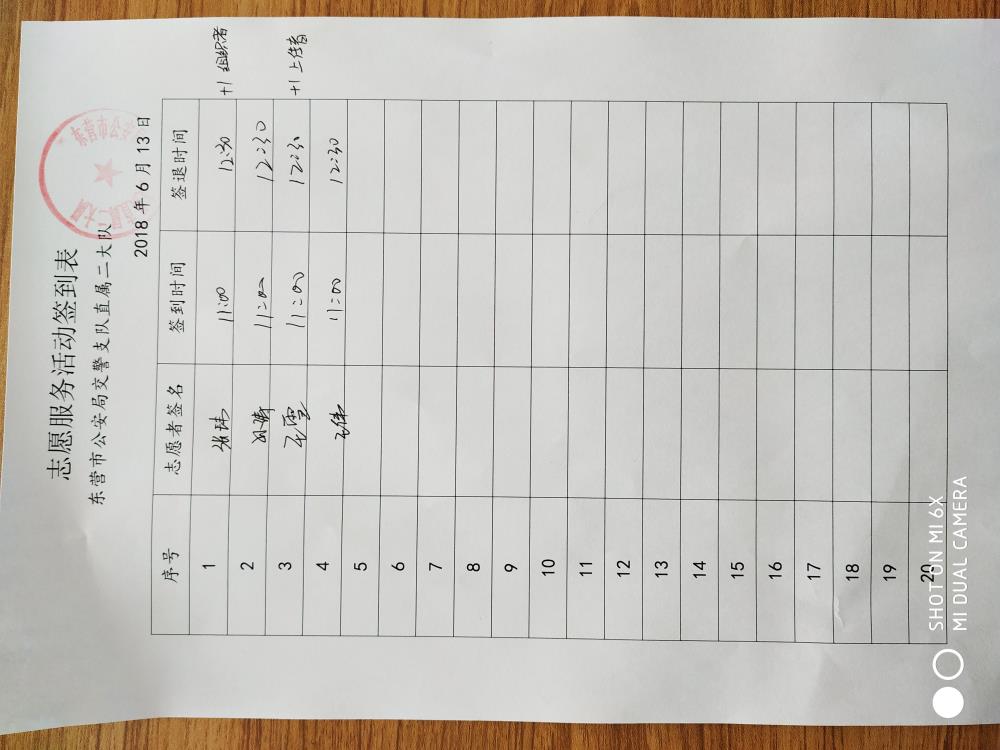 志愿服务活动签到表
东营市公安局交警支队直属二大队
2018 年 6 月 13 日
序号 志愿者签名 签到时间 签退时间
1 张玮 11:00 12:30 +1 组织者
2 11:00 12:30
3 王雪 11:00 12:30 +1 上传者
4 王伟 11:00 12:30
5
6
7
8
9
10
11
12
13
14
15
16
17
18
19
20
东营市公安
SHOT ON MI 6X
MI DUAL CAMERA